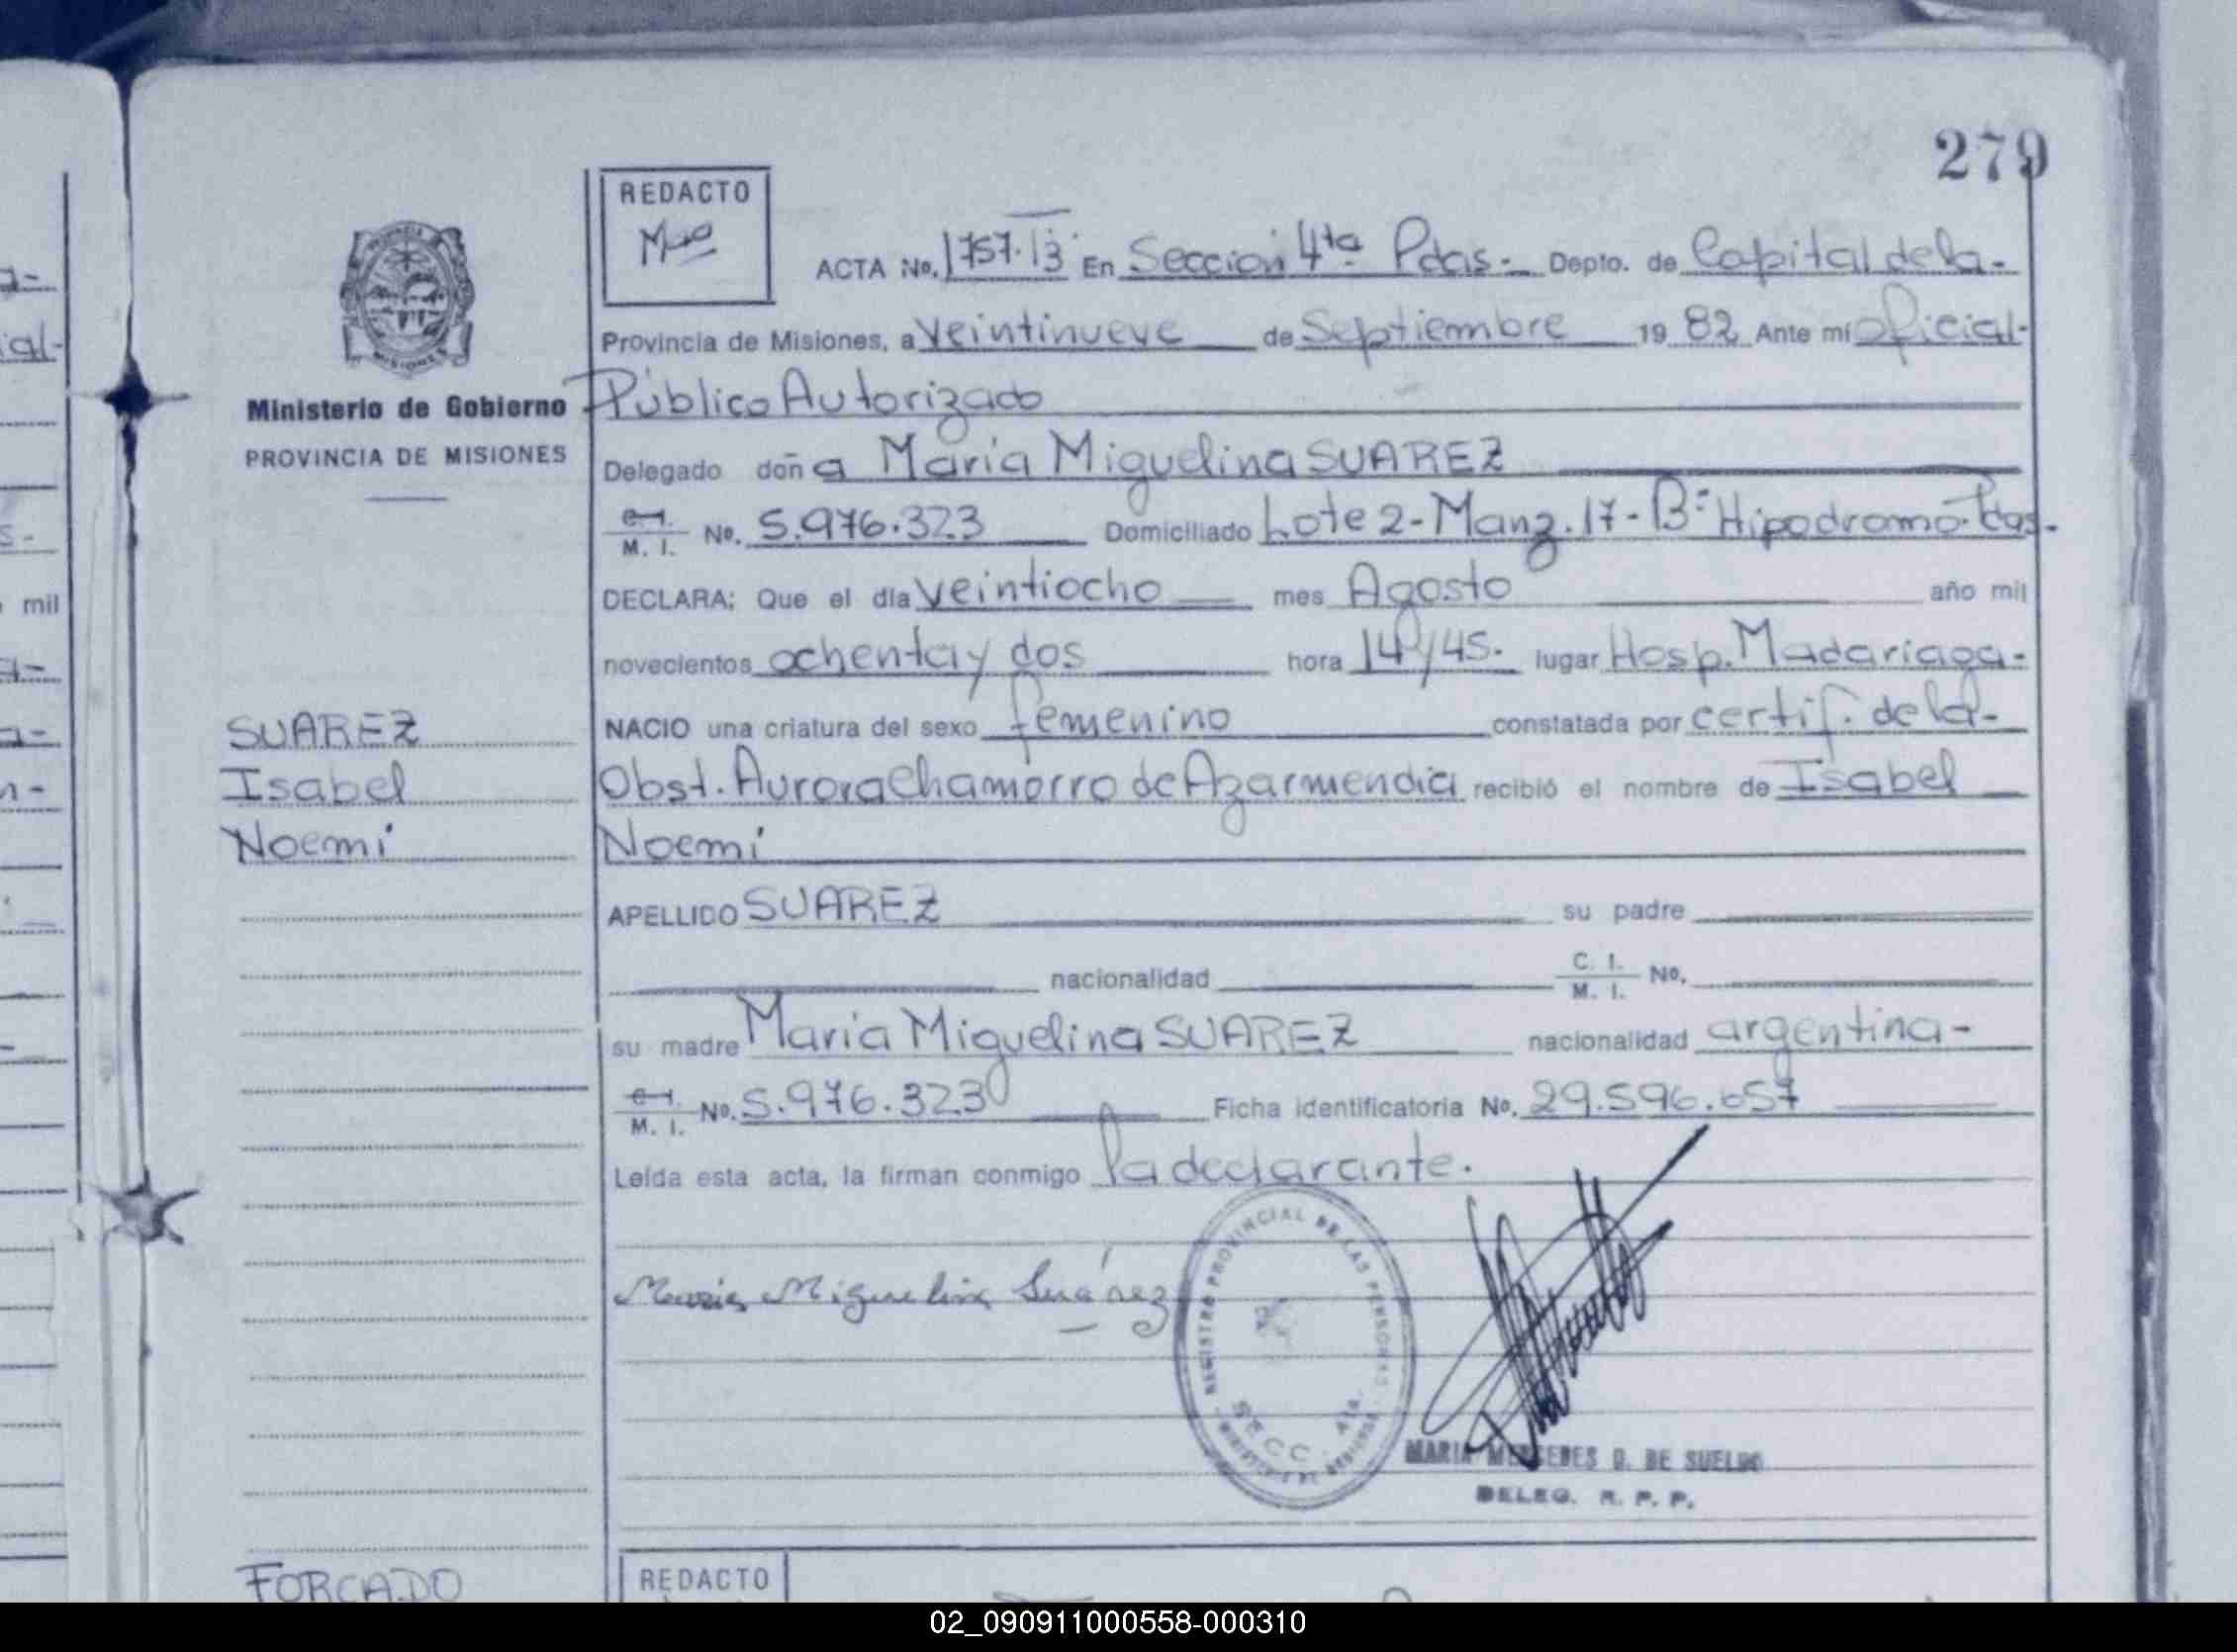 279
REDACTO
ACTA No. 1757·13 En Sección 4ta Pdas.- Depto. de Capital de la-
Provincia de Misiones, a Veintinueve de Septiembre 1982 Ante mí Oficial-
Público Autorizado
Ministerio de Gobierno
PROVINCIA DE MISIONES
Delegado doña María Miguelina SUAREZ
C.I. M. I. No. 5.976.323 Domiciliado Lote 2-Manz.17-Bº Hipodromo-Pdas.-
DECLARA: Que el día Veintiocho mes Agosto año mil
novecientos ochenta y dos hora 14/45. lugar Hosp. Madariaga-
NACIO una criatura del sexo femenino constatada por certif. de la-
Obst. Aurora Chamorro de Azarmendia recibió el nombre de Isabel
Noemí
SUAREZ
Isabel
Noemí
APELLIDO SUAREZ su padre
nacionalidad C. I. M. I. No.
su madre María Miguelina SUAREZ nacionalidad argentina-
C.I. M. I. No. 5.976.323 Ficha identificatoria No. 29.596.657
Leída esta acta, la firman conmigo la declarante.
Maria Miguelina Suárez
REGISTRO PROVINCIAL DE LAS PERSONAS
SECC. 4ta.
MINISTERIO DE GOBIERNO
MARIA MERCEDES D. DE SUELDO
DELEG. R. P. P.
FORCADO
REDACTO
02_090911000558-000310